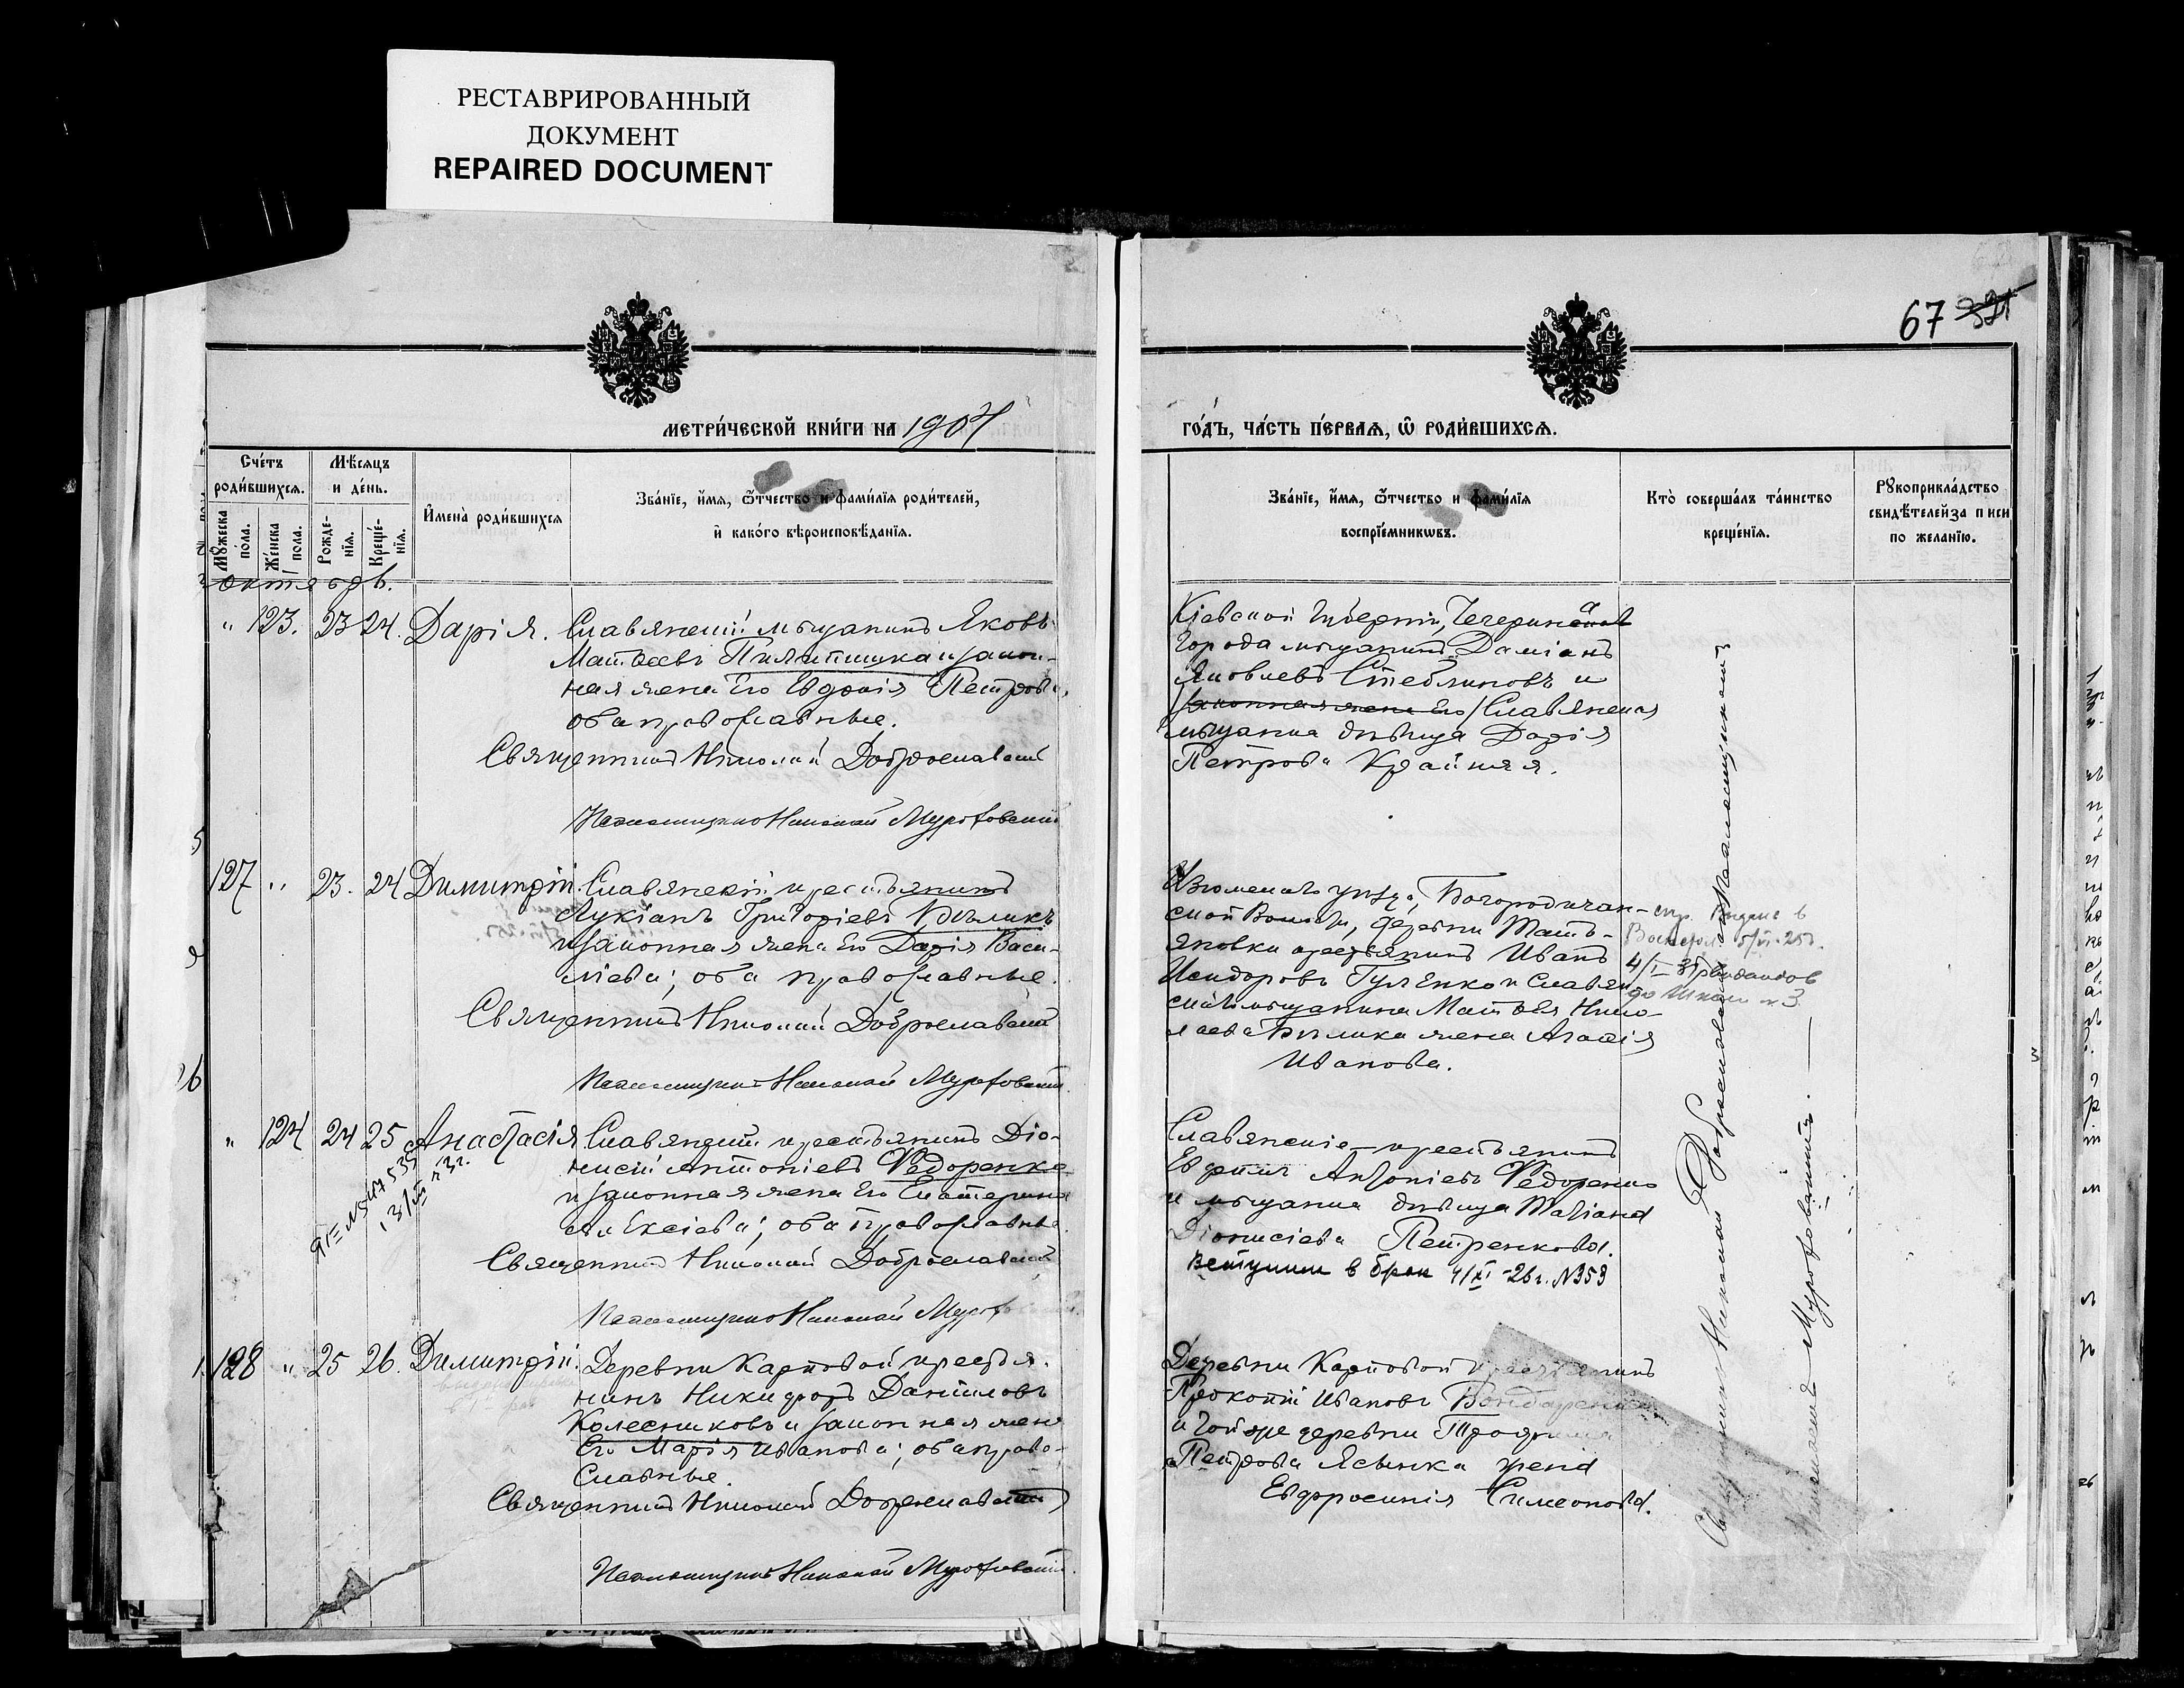 РЕСТАВРИРОВАННЫЙ
ДОКУМЕНТ
REPAIRED DOCUMENT
67 321
МЕТРИ́ЧЕСКОЙ КНИ́ГИ НА 1904
ГО́ДЪ, ЧА́СТЬ ПЕ́РВАѦ, Ѿ РОДИ́ВШИХСѦ.
Сче́тъ роди́вшихсѧ.
Мѹжеска по́ла.
Же́нска пола.
Мѣ́сѧцъ и де́нь.
Рожде́нїѧ.
Креще́нїѧ.
И́мена̀ роди́вшихсѧ
Зва́нїе, и́мѧ, ѻ́тчество и фами́лїѧ роди́телей,
и҆ како́гѡ вѣроисповѣ́данїѧ.
Зва́нїе, и́мѧ, ѻ́тчество и фами́лїѧ
воспрїе́мникѡвъ.
Кто̀ соверша́лъ та́инство
креще́нїѧ.
Рѹкоприкла́дство
свидѣ́телей записи
по жела́нїю.
Октябрь.
" 123. 23 24. Дарія.
Славянскій мѣщанинъ Яковъ
Матѳеевъ Пилипишка и закон-
ная жена его Евдокія Петрова,
оба православные.
Священникъ Николай Доброславскій
Псаломщикъ Николай Муроховскій
Кіевской губерніи, Чегеринска
города мѣщанинъ Даміанъ
Яковлевъ Стеблиновъ и
законная жена его / Славянская
мѣщанка дѣвица Дарія
Петрова Крайняя.
127 " 23. 24 Димитрій.
Славянскій крестьянинъ
Лукіанъ Григоріевъ
и законная жена его Дарія Васи-
ліева; оба православные.
Священникъ Николай Доброславскій
Псаломщикъ Николай Муроховскій
Изюмскаго уѣзда, Богородичан-
ской волости, деревни Тать-
яновки крестьянинъ Иванъ
Исидоровъ Гуленко и Славян-
скаго мѣщанина Матѳея Нико-
лаева Билика жена Агафія
Иванова.
" 124 24 25 Анастасія
13/III
Славянскій крестьянинъ Діо-
нисій Антоніевъ Ѳедоренко
и законная жена его Екатерина
Алексіева; оба православные.
Священникъ Николай Доброславскій
Псаломщикъ Николай Мурох
Славянскіе крестьянинъ
Евфимъ Антоніевъ Ѳедоренко
и мѣщанка дѣвица
Діонисіева Петренкова.
Вступил в брак 4/XI-26 г. N353
128 " 25 26. Димитрій.
Деревни Карповой крестья-
нинъ Никифоръ Даниловъ
Колесниковъ и законная жена
его Марія Иванова; оба право-
славные.
Священникъ Николай Доброславскій
Псаломщикъ Николай Муроховскій
Деревни Карповой крестьянинъ
Прокопій Ивановъ Бондаренко
и той же деревни Трофима
Петрова жена
Евфросинія Симеонова.
Священникъ Николай Доброславскій
Псаломщикъ
Муроховскій.